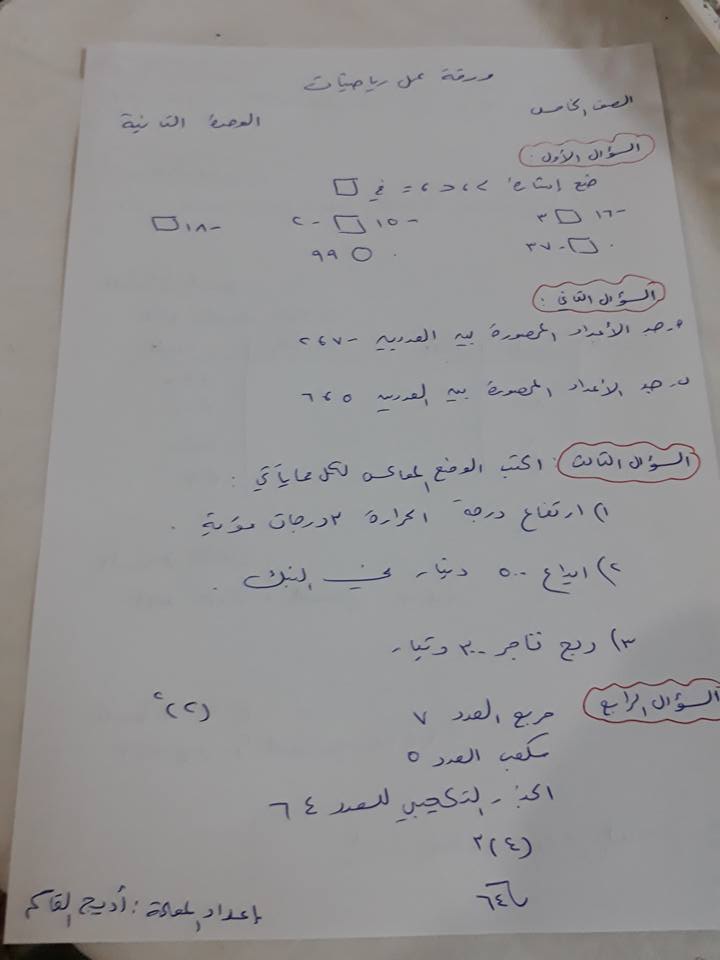 ورقة عمل رياضيات
الصف الخامس
الوحدة الثانية
السؤال الأول:
ضع إشارة > ، < ، = في □
-١٦ □ ٣ -١٥ □ -٢ -١٨ □
٠ □ -٣٧ ٠ ○ ٩٩
السؤال الثاني:
جد الأعداد المحصورة بين العددين -٧ ، ٢
ب- جد الأعداد المحصورة بين العددين ٥ ، ٦
السؤال الثالث: اكتب الوضع المعاكس لكل مما يأتي:
١) ارتفاع درجة الحرارة ٣ درجات مئوية.
٢) ايداع ٥٠٠ دينار في البنك.
٣) ربح تاجر ٣٠٠ دينار
السؤال الرابع مربع العدد ٧ (٢)٢
مكعب العدد ٥
الجذر التكعيبي للعدد ٦٤
(٤)٣
√٦٤
إعداد المعلمة: أديج القاسم